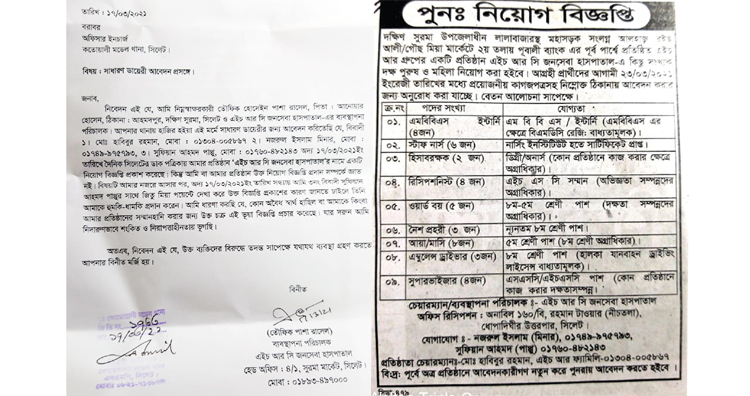 তারিখ : ১৭/০৩/২০২১
বরাবর
অফিসার ইনচার্জ
কতোয়ালী মডেল থানা, সিলেট।
বিষয় : সাধারণ ডায়েরী আবেদন প্রসঙ্গে।
জনাব,
নিবেদন এই যে, আমি নিম্নস্বাক্ষরকারী তৌফিক হোসেইন পাশা রাসেল, পিতা : আনোয়ার
হোসেন, ঠিকানা : আহমদপুর, দক্ষিণ সুরমা, সিলেট ও এইচ আর সি জনসেবা হাসপাতাল-এর ব্যবস্থাপনা
পরিচালক। আপনার থানায় হাজির হইয়া এই মর্মে সাধারণ ডায়েরীর জন্য আবেদন করিতেছি যে, বিবাদী
১। মোঃ হাবিবুর রহমান, মোবা : ০১৩০৪-০০৫৮৬৭ ২। নজরুল ইসলাম মিনার, মোবা :
০১৭৪৯-৯৭৫৭৯৩, ৩। সুফিয়ান আহমদ পাপ্পু, মোবা : ০১৭৬০-৪৮২১৪৩ গণ অদ্য ১৭/০৩/২০২১ইং
তারিখে দৈনিক সিলেটের ডাক পত্রিকায় আমার প্রতিষ্ঠান 'এইচ আর সি জনসেবা হাসপাতাল'র নামে একটি
নিয়োগ বিজ্ঞপ্তি প্রকাশ করেছে। কিন্তু আমি বা আমার প্রতিষ্ঠান উক্ত নিয়োগ বিজ্ঞপ্তি প্রদান সম্পর্কে জ্ঞাত
নই। বিষয়টি আমার নজরে আসার পর, অদ্য ১৭/০৩/২০২১ইং তারিখ সন্ধ্যায় আমি ৩নং বিবাদী সুফিয়ান
আহমদ পাপ্পুর সাথে জিতু মিয়া পয়েন্টে দেখা করে উক্ত বিজ্ঞপ্তি প্রকাশের কারণ জানতে চাইলে তিনি
আমাকে হুমকি-ধামকি প্রদান করেন। আমি ধারণা করছি যে, কোন অবৈধ স্বার্থ হাছিল বা আমাকে কিংবা
আমার প্রতিষ্ঠানের সম্মানহানি করার জন্য উক্ত চক্র এই ভূয়া বিজ্ঞপ্তি প্রচার করেছে। যার দরুন আমি
নিদারুণভাবে শংকিত ও নিরাপত্তাহীনতায় ভূগছি।
অতএব, নিবেদন এই যে, উক্ত ব্যক্তিদের বিরুদ্ধে তদন্ত সাপেক্ষে যথাযথ ব্যবস্থা গ্রহণ করতে
আপনার বিনীত মর্জি হয়।
বিনীত
(তৌফিক পাশা রাসেল)
ব্যবস্থাপনা পরিচালক
এইচ আর সি জনসেবা হাসপাতাল
হেড অফিস : ৪/১, সুরমা মার্কেট, সিলেট।
মোবা : ০১৮৯৩-৪৯৭০০০
পুনঃ নিয়োগ বিজ্ঞপ্তি
দক্ষিণ সুরমা উপজেলাধীন লালাবাজারস্থ মহাসড়ক সংলগ্ন আলহাজ্ব রইছ
আলী/গৌছ মিয়া মার্কেটে ২য় তলায় পূবালী ব্যাংক এর পূর্ব পার্শ্বে প্রতিষ্ঠিত এইচ
আর গ্রুপের একটি প্রতিষ্ঠান এইচ আর সি জনসেবা হাসপাতাল-এ কিছু সংখ্যক
দক্ষ পুরুষ ও মহিলা নিয়োগ করা হইবে। আগ্রহী প্রার্থীদের আগামী ২৩/০৩/২০২১
ইংরেজী তারিখের মধ্যে প্রয়োজনীয় কাগজপত্রসহ নিম্নোক্ত ঠিকানায় আবেদন করার
জন্য অনুরোধ করা যাচ্ছে। বেতন আলোচনা সাপেক্ষে।
ক্র.নং পদের সংখ্যা যোগ্যতা
০১. এমবিবিএস ইন্টার্নি (৪জন) এম বি বি এস / ইন্টার্নি (এমবিবিএস এর ক্ষেত্রে বিএমডিসি রেজিঃ বাধ্যতামূলক)।
০২. স্টাফ নার্স (৬ জন) নার্সিং ইনস্টিটিউট হতে সার্টিফিকেট প্রাপ্ত।
০৩. হিসাবরক্ষক (২ জন) ডিগ্রী/অনার্স (কোন প্রতিষ্ঠানে কাজ করার ক্ষেত্রে অগ্রাধিকার)।
০৪. রিসিপশনিস্ট (৪ জন) এইচ এস সি সম্মান (অভিজ্ঞতা সম্পন্নদের অগ্রাধিকার)।
০৫. ওয়ার্ড বয় (৫ জন) ৮ম-৫ম শ্রেণী পাশ (দক্ষতা সম্পন্নদের অগ্রাধিকার)।
০৬. নৈশ প্রহরী (৩ জন) ন্যূনতম ৮ম শ্রেণী পাশ।
০৭. আয়া/মাসি (৮জন) ৫ম শ্রেণী পাশ (৮ম শ্রেণী অগ্রাধিকার)।
০৮. এম্বুলেন্স ড্রাইভার (৩জন) ৮ম শ্রেণী পাশ (হালকা যানবাহন ড্রাইভিং লাইসেন্স বাধ্যতামূলক)।
০৯. সুপারভাইজার (৪জন) এসএসসি/এইচএসসি পাশ (কোন প্রতিষ্ঠানে কাজ করার দক্ষতাসম্পন্ন)।
চেয়ারম্যান/ব্যবস্থাপনা পরিচালক:- এইচ আর সি জনসেবা হাসপাতাল
অফিস রিসিপশন:- অনাবিল ১৬০/বি, রহমান টাওয়ার (নীচতলা),
ধোপাদিঘীর উত্তরপার, সিলেট।
যোগাযোগ :- নজরুল ইসলাম (মিনার), ০১৭৪৯-৯৭৫৭৯৩,
সুফিয়ান আহমদ (পাপ্পু) ০১৭৬০-৪৮২১৪৩
প্রতিষ্ঠাতা চেয়ারম্যান:-মোঃ হাবিবুর রহমান, এইচ আর ফ্যামিলি-০১৩০৪-০০৫৮৬৭
বি:দ্র: পূর্বে অত্র প্রতিষ্ঠানে আবেদনকারীগণ নতুন করে পুনরায় আবেদন করতে হইবে।